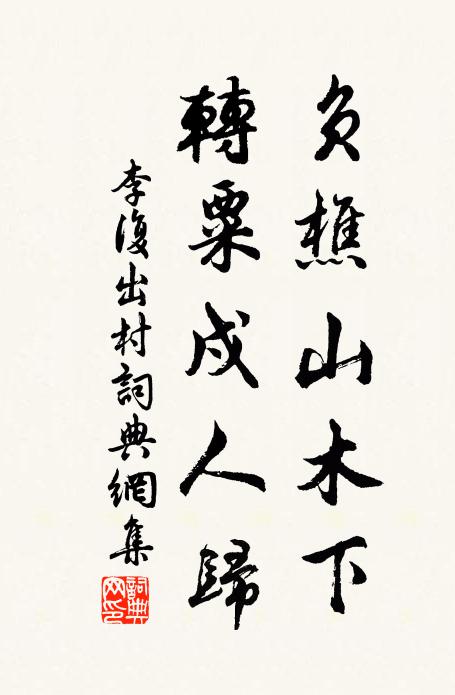 负樵山木下
轉粟戍人歸
李復出村詞典網集
詞典网印